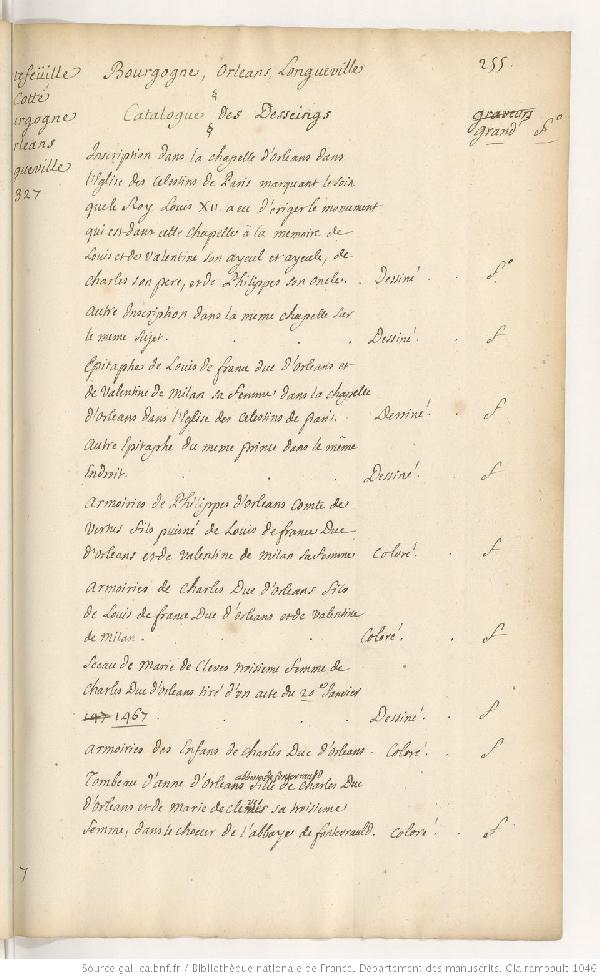 tefeüille Bourgogne, Orleans, Longueville 255.
Cotté
urgogne Catalogue des Desseings graveurs
rleans grand f.º
gueville
327
Inscription dans la chapelle d'orleans dans
l'Eglise des celestins de Paris marquant le soin
que le Roy Louis XII. a eu d'eriger le monument
qui est dans cette chapelle à la memoire de
Louis et de Valentine son ayeul et ayeule, de
charles son pere, et de Philippes son oncle. . Dessiné . . f.º
autre Inscription dans la meme chapelle sur
le meme sujet. . . . Dessiné . . f
Epitaphe de Louis de france duc d'orleans et
de Valentine de Milan sa femme dans la chapelle
d'orleans dans l'Eglise des celestins de paris. Dessiné . . f
autre Epitaphe du meme prince dans le même
Endroit. . . . Dessiné . . f
armoiries de Philippes d'orleans comte de
vertus fils puisné de Louis de france Duc
d'orleans et de valentine de milan sa femme Coloré . . f
armoiries de Charles Duc d'orleans fils
de Louis de france Duc d'orleans et de valentine
de milan . . . . Coloré . . f
Sceau de Marie de Cleves troisieme femme de
Charles Duc d'orleans tiré d'un acte du 20 Janvier
147 1467 . . . . Dessiné . . f
armoiries des Enfans de Charles Duc d'orleans . Coloré . . f
abbesse de fontevrauld
Tombeau d'anne d'Orleans fille de Charles Duc
d'orleans et de marie de cleves sa troisieme
femme, dans le choeur de l'abbaye de fontevrauld. Coloré . . f
7
Source gallica.bnf.fr / Bibliothèque nationale de France. Département des manuscrits. Clairambault 1046